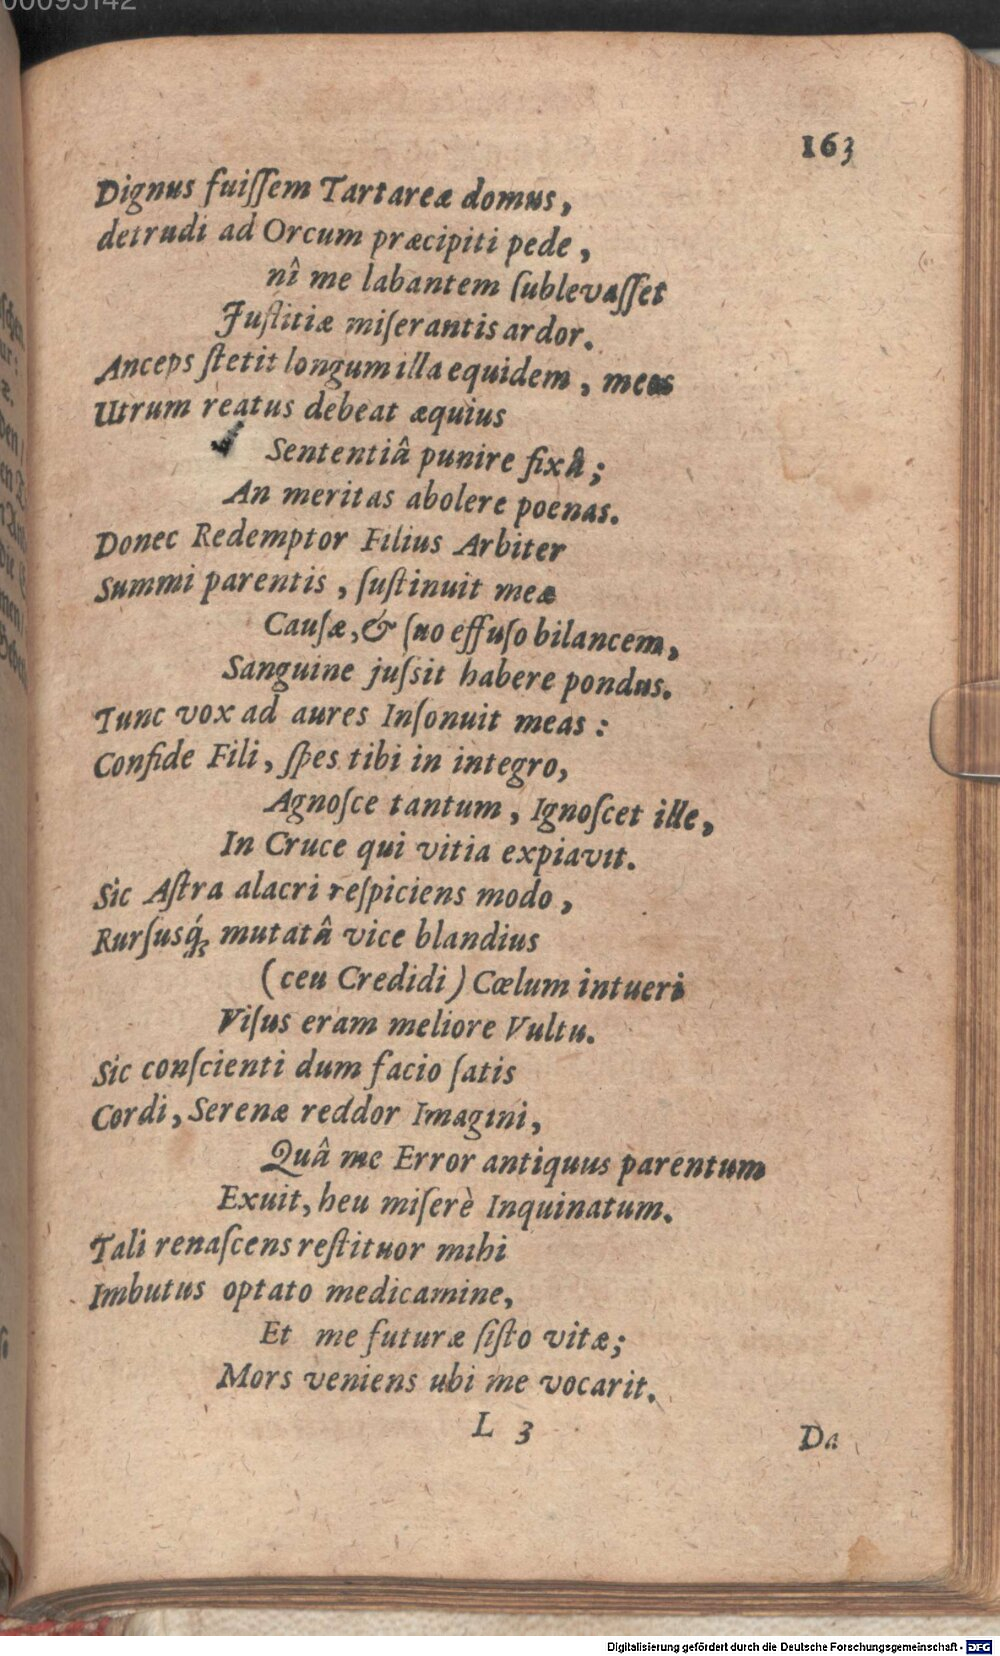 00095142
163
Dignus fuiſſem Tartareæ domus,
detrudi ad Orcum præcipiti pede,
nî me labantem ſublevaſſet
Juſtitiæ miſerantis ardor.
Anceps ſtetit longum illa equidem, meos
Utrum reatus debeat æquius
Sententiâ punire fixâ;
An meritas abolere poenas.
Donec Redemptor Filius Arbiter
Summi parentis, ſuſtinuit meæ
Cauſæ, & ſuo effuſo bilancem,
Sanguine juſsit habere pondus.
Tunc vox ad aures Inſonuit meas:
Confide Fili, ſpes tibi in integro,
Agnoſce tantum, Ignoſcet ille,
In Cruce qui vitia expiavit.
Sic Aſtra alacri reſpiciens modo,
Rurſusq́; mutatâ vice blandius
(ceu Credidi) Cœlum intueri
Viſus eram meliore Vultu.
Sic conſcienti dum facio ſatis
Cordi, Serenæ reddor Imagini,
Quâ me Error antiquus parentum
Exuit, heu miſerè Inquinatum.
Tali renaſcens reſtituor mihi
Imbutus optato medicamine,
Et me futuræ ſiſto vitæ;
Mors veniens ubi me vocarit.
L 3
Da
Digitalisierung gefördert durch die Deutsche Forschungsgemeinschaft - DFG